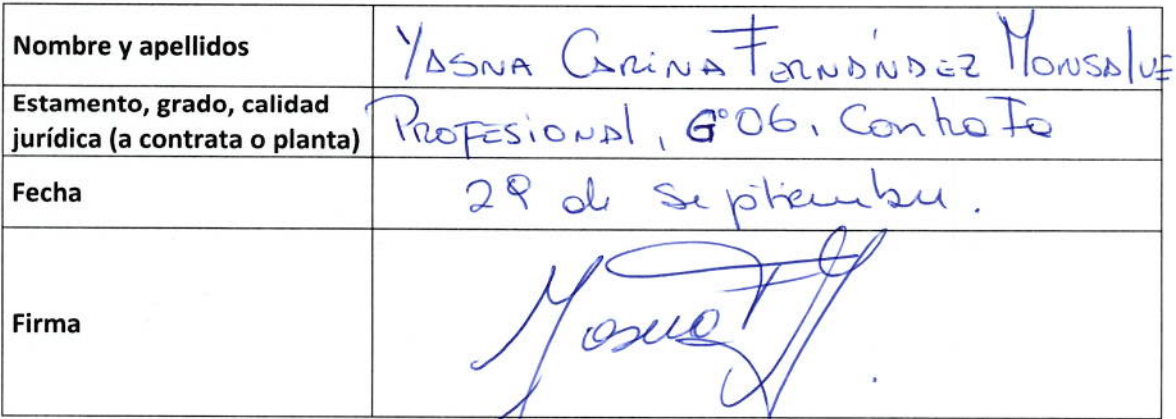 Nombre y apellidos
YASNA CARINA FERNÁNDEZ MONSALVE
Estamento, grado, calidad
jurídica (a contrata o planta)
PROFESIONAL, G°06, Contrata
Fecha
29 de septiembre.
Firma
Yasna F